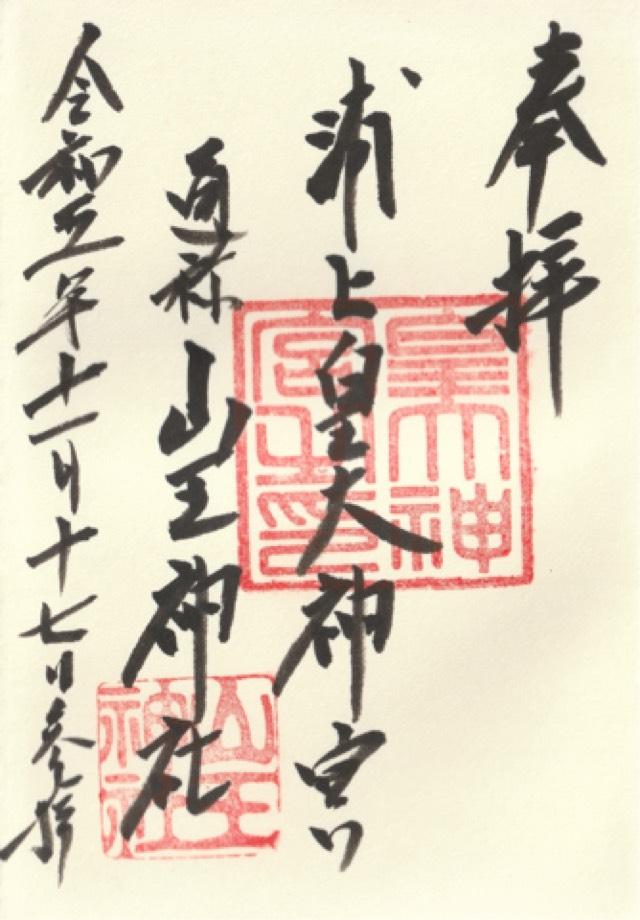 奉拝
浦上皇大神宮
通称 山王神社
令和五年十一月十七日参拝
皇大神宮之印
山王神社